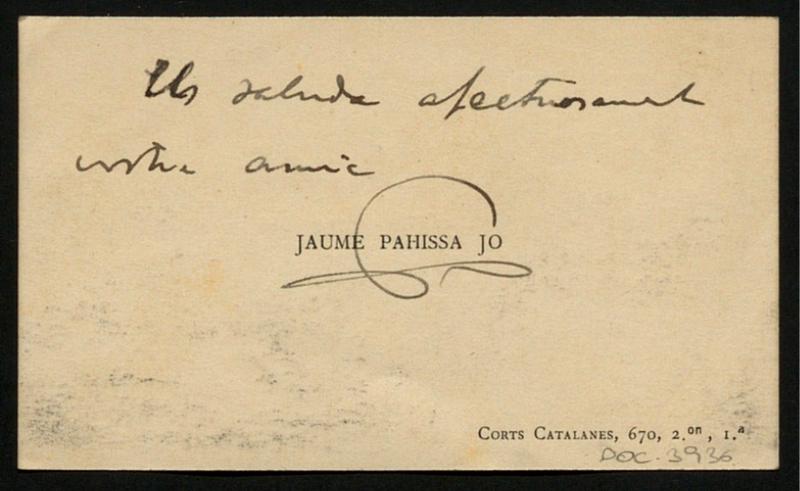 Us saluda afectuosament
vostre amic
JAUME PAHISSA JO
CORTS CATALANES, 670, 2.on, 1.a
DOC. 3936